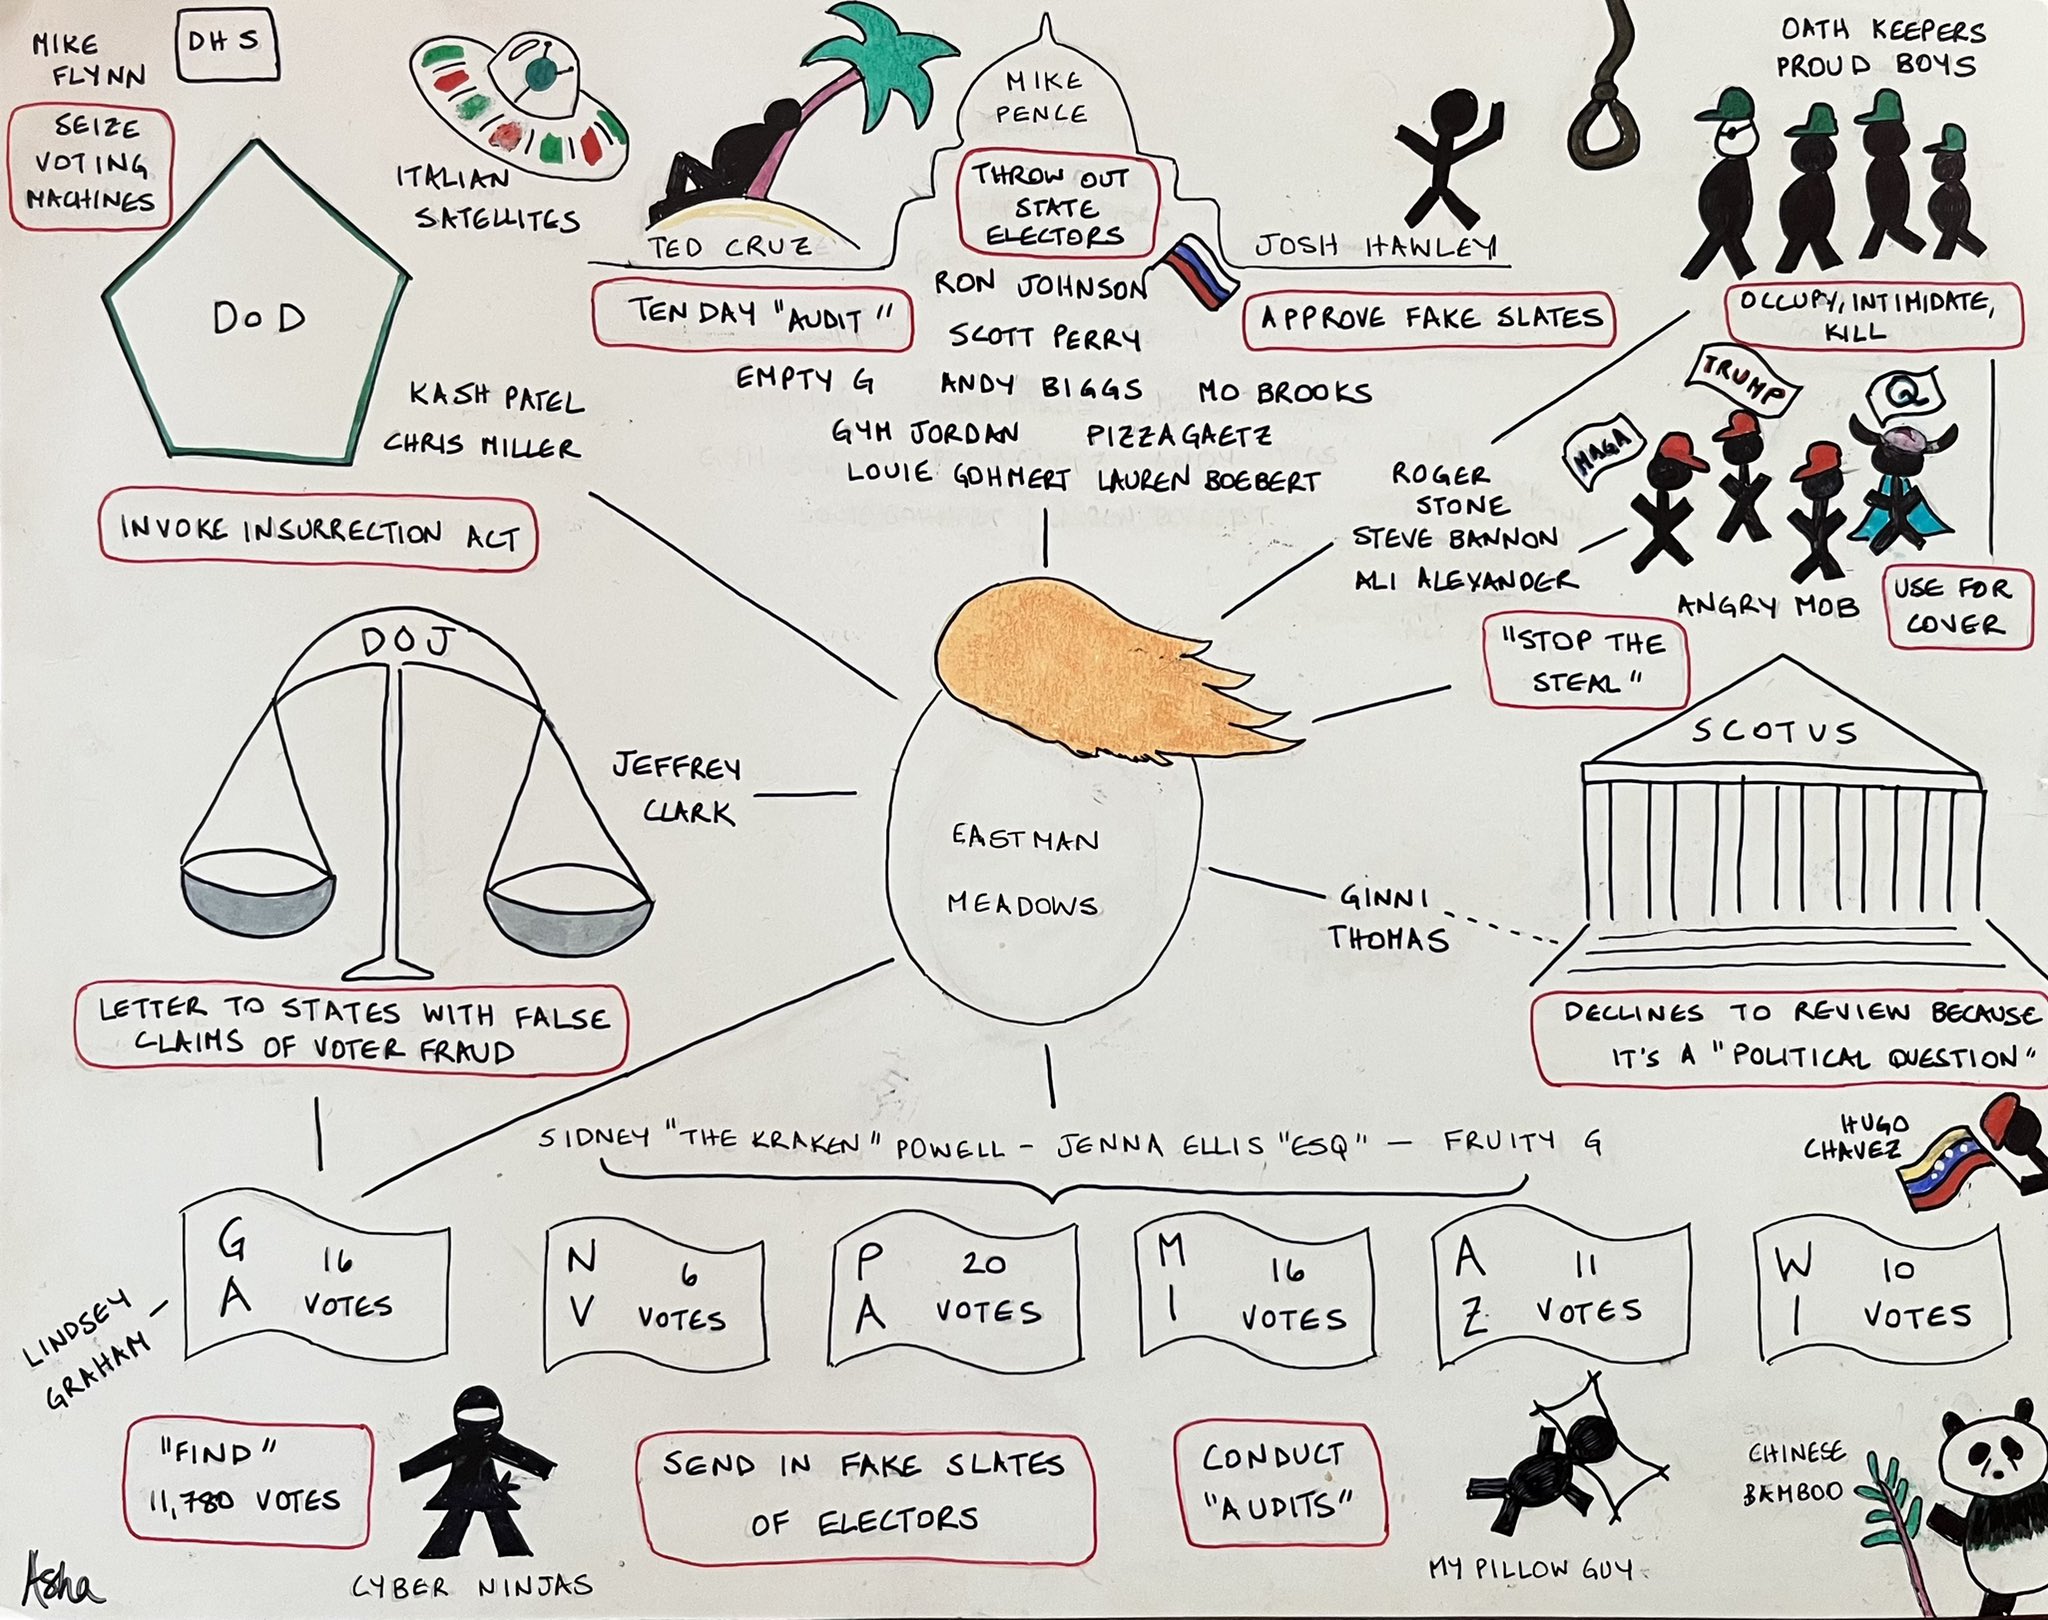 MIKE
FLYNN
DHS
SEIZE
VOTING
MACHINES
DoD
ITALIAN
SATELLITES
KASH PATEL
CHRIS MILLER
INVOKE INSURRECTION ACT
TED CRUZ
TEN DAY "AUDIT"
MIKE
PENCE
THROW OUT
STATE
ELECTORS
JOSH HAWLEY
APPROVE FAKE SLATES
RON JOHNSON
SCOTT PERRY
EMPTY G ANDY BIGGS MO BROOKS
GYM JORDAN PIZZAGAETZ
LOUIE GOHMERT LAUREN BOEBERT
OATH KEEPERS
PROUD BOYS
OCCUPY, INTIMIDATE,
KILL
TRUMP
MAGA
Q
ROGER
STONE
STEVE BANNON
ALI ALEXANDER
ANGRY MOB
USE FOR
COVER
"STOP THE
STEAL"
DOJ
JEFFREY
CLARK
LETTER TO STATES WITH FALSE
CLAIMS OF VOTER FRAUD
EASTMAN
MEADOWS
GINNI
THOMAS
SCOTUS
DECLINES TO REVIEW BECAUSE
IT'S A "POLITICAL QUESTION"
SIDNEY "THE KRAKEN" POWELL - JENNA ELLIS "ESQ" - FRUITY G
HUGO
CHAVEZ
GA
16
VOTES
NV
6
VOTES
PA
20
VOTES
MI
16
VOTES
AZ
11
VOTES
WI
10
VOTES
LINDSEY
GRAHAM
"FIND"
11,780 VOTES
CYBER NINJAS
SEND IN FAKE SLATES
OF ELECTORS
CONDUCT
"AUDITS"
MY PILLOW GUY
CHINESE
BAMBOO
Asha